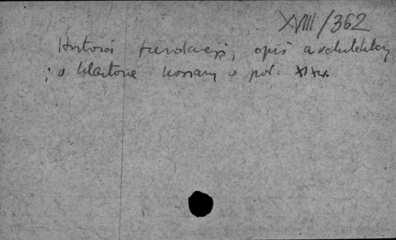 XVIII/362
Historia fundacji, opis architektury
i o klasztorze w poł. XIX w.